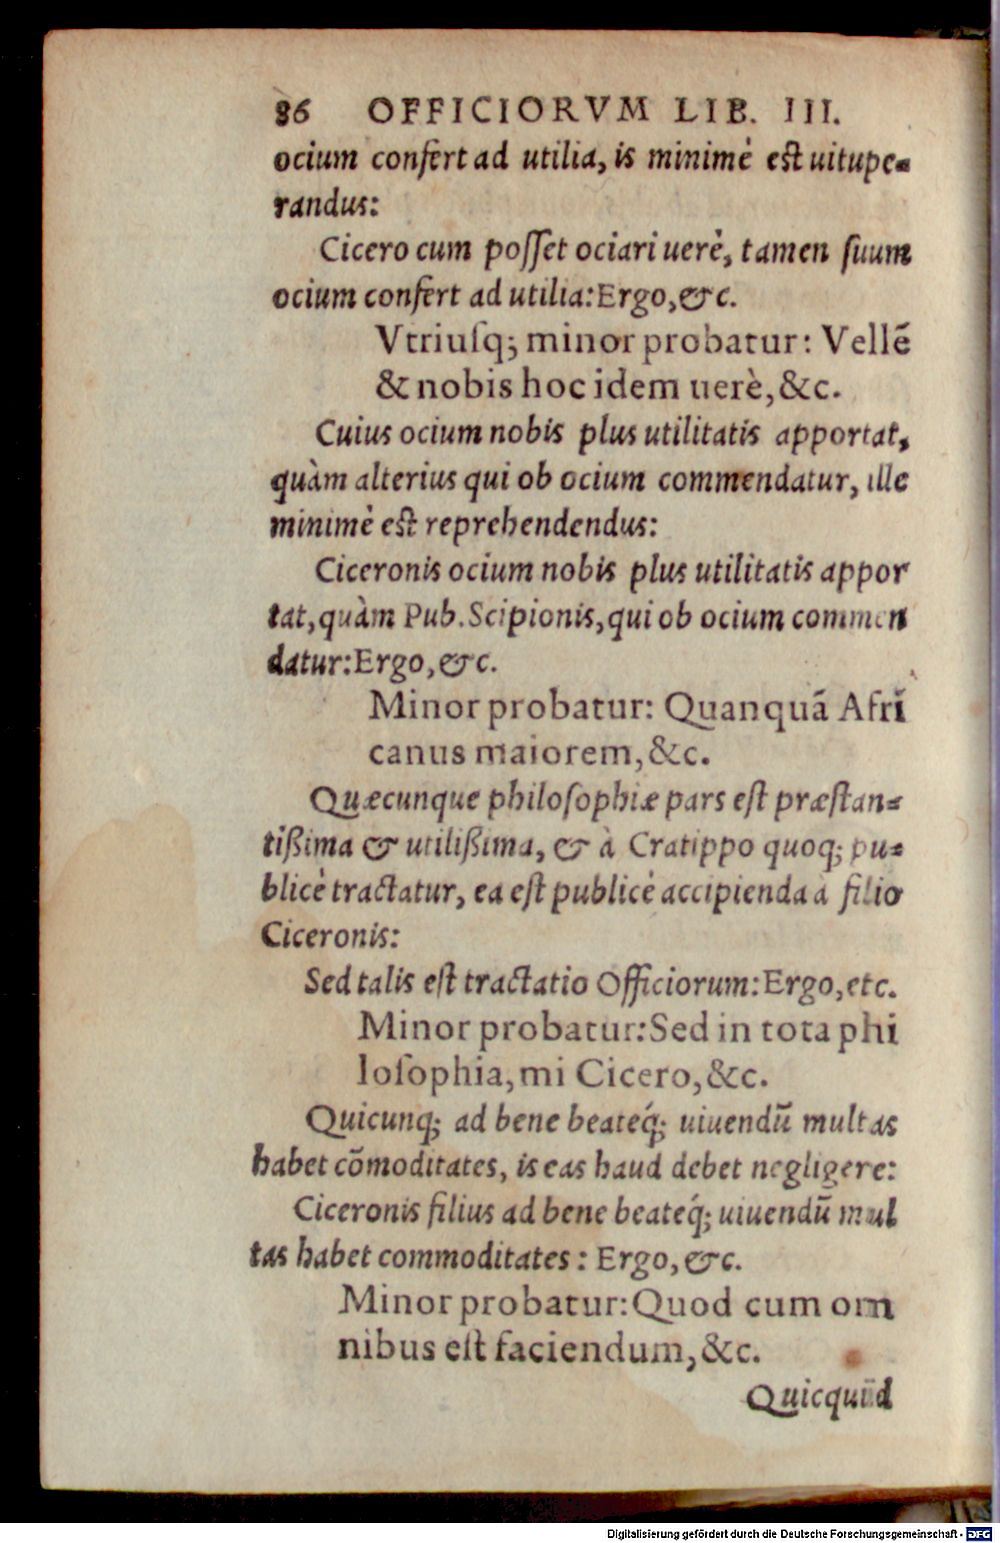 86 OFFICIORVM LIB. III.
ocium confert ad utilia, is minimè est uitupe-
randus:
Cicero cum posset ociari uerè, tamen suum
ocium confert ad utilia: Ergo, &c.
Vtriusq; minor probatur: Vellē
& nobis hoc idem uerè, &c.
Cuius ocium nobis plus utilitatis apportat,
quàm alterius qui ob ocium commendatur, ille
minimè est reprehendendus:
Ciceronis ocium nobis plus utilitatis appor
tat, quàm Pub. Scipionis, qui ob ocium commen
datur: Ergo, &c.
Minor probatur: Quanquā Afri
canus maiorem, &c.
Quæcunque philosophiæ pars est præstan-
tißima & utilißima, & à Cratippo quoq; pu-
blicè tractatur, ea est publicè accipienda à filio
Ciceronis:
Sed talis est tractatio Officiorum: Ergo, etc.
Minor probatur: Sed in tota phi
losophia, mi Cicero, &c.
Quicunq; ad bene beateq́; uiuendū multas
habet cōmoditates, is eas haud debet negligere:
Ciceronis filius ad bene beateq́; uiuendū mul
tas habet commoditates: Ergo, &c.
Minor probatur: Quod cum om
nibus est faciendum, &c.
Quicquid
Digitalisierung gefördert durch die Deutsche Forschungsgemeinschaft - DFG